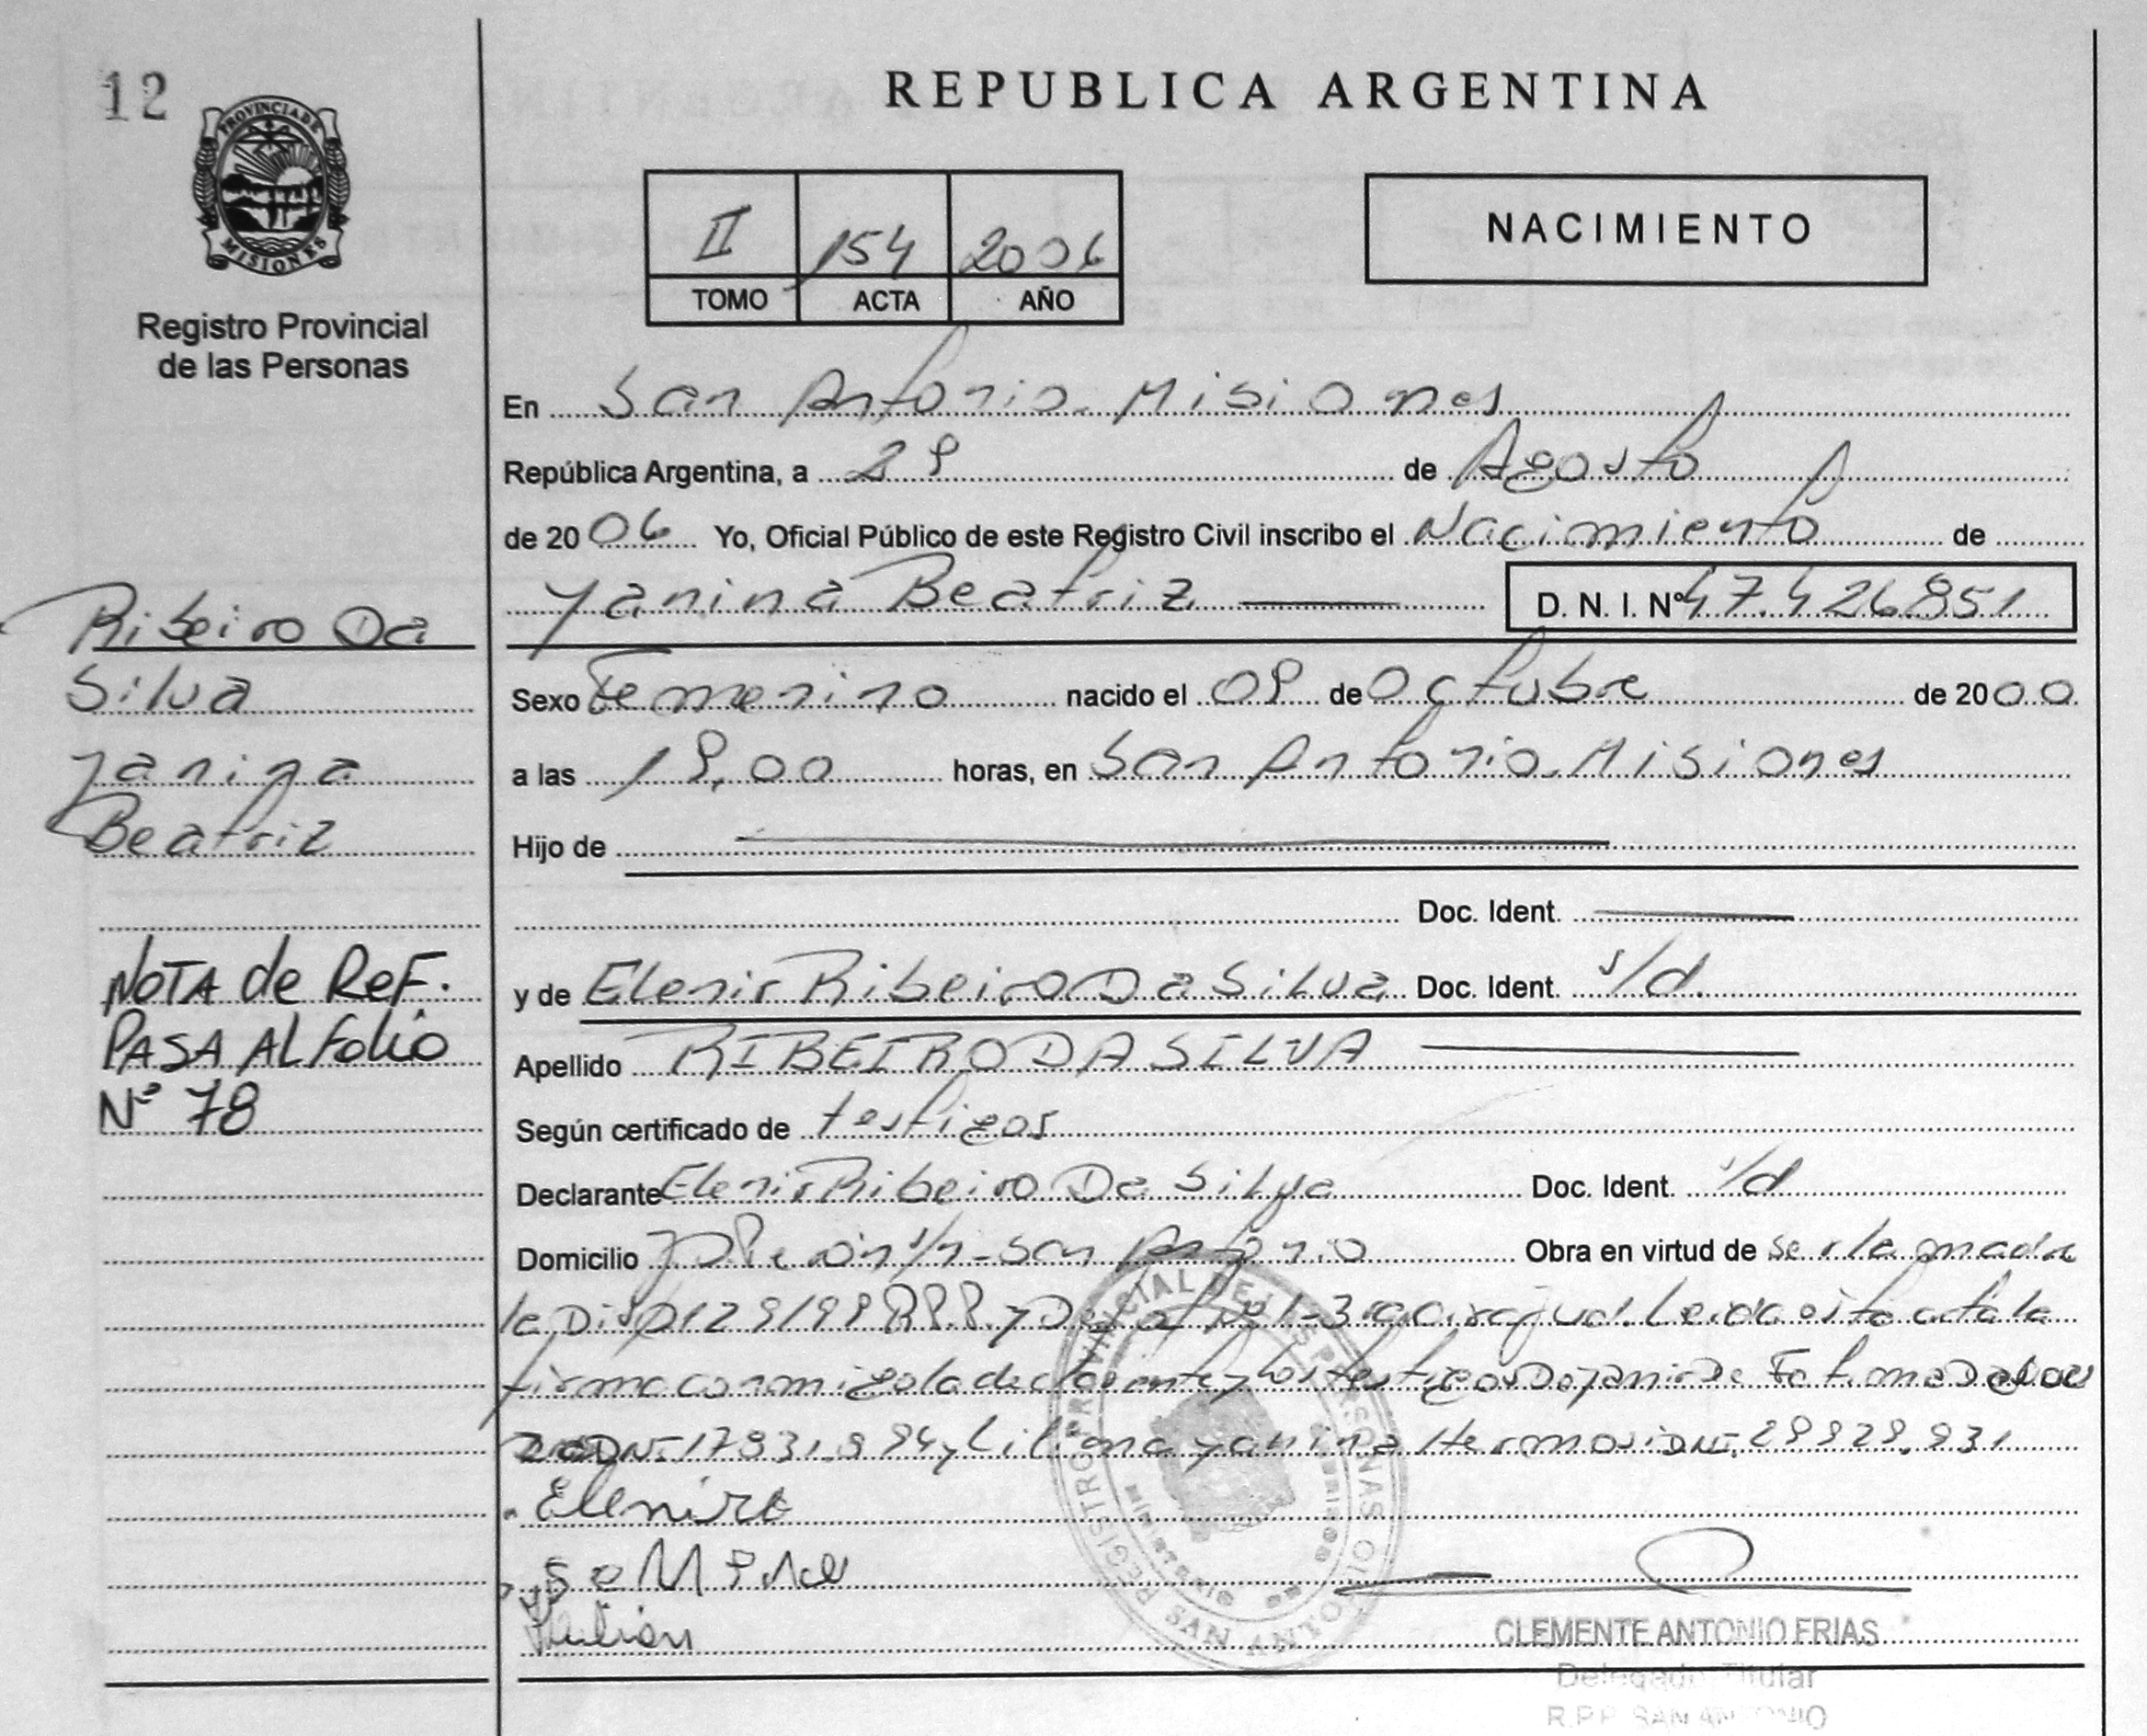 12
PROVINCIA DE
MISIONES
Registro Provincial
de las Personas
REPUBLICA ARGENTINA
II 154 2006
TOMO ACTA AÑO
NACIMIENTO
En San Antonio. Misiones
República Argentina, a 29 de Agosto
de 2006 Yo, Oficial Público de este Registro Civil inscribo el Nacimiento de
Yanina Beatriz D. N. I. Nº 47.426.851
Ribeiro Da
Silva
Yanina
Beatriz
Sexo Femenino nacido el 09 de Octubre de 2000
a las 19,00 horas, en San Antonio. Misiones
Hijo de
Doc. Ident.
NOTA de REF.
PASA AL Folio
Nº 78
y de Elenir Ribeiro Da Silva Doc. Ident. s/d.
Apellido RIBEIRO DA SILVA
Según certificado de testigos
Declarante Elenir Ribeiro Da Silva Doc. Ident. s/d
Domicilio J D Perón s/n - San Antonio Obra en virtud de ser la madre
Leida esta acta la
firma conmigo la declarante y los testigos De Fatima
y Liliana Yanina
Elenir
REGISTRO PROVINCIAL DE LAS PERSONAS
SAN ANTONIO
CLEMENTE ANTONIO FRIAS
Delegado Titular
R.P.P. SAN ANTONIO